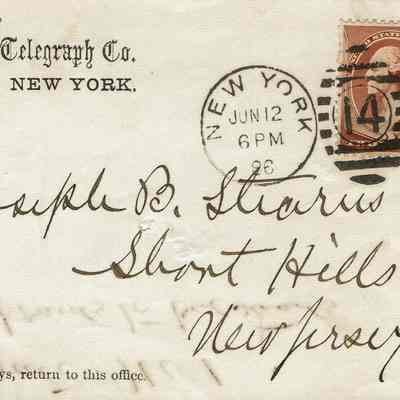 Telegraph Co.
NEW YORK.
NEW YORK
JUN 12
6 PM
86
14
seph B. Stearns
Short Hills
New Jersey
ys, return to this office.